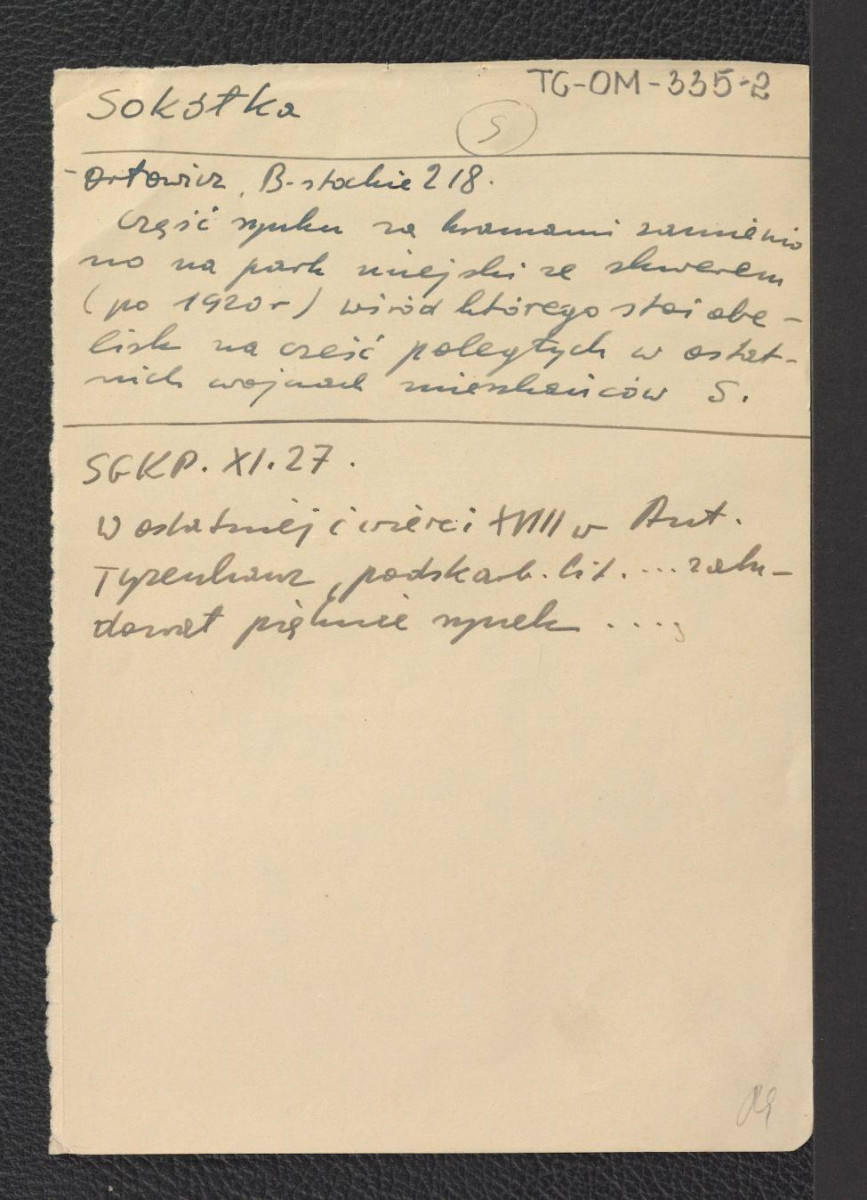 TG-OM-335-2
Sokółka
5
- Orłowicz, B-stockie 218.
Część rynku za kramami zamienio
no na park miejski ze skwerem
(po 1920 r) wśród którego stoi obe-
lisk na cześć poległych w ostat-
nich wojnach mieszkańców S.
SGKP. XI. 27.
W ostatniej ćwierci XVIII w Ant.
Tyzenhauz, podskarb. lit. ... zabu-
dował pięknie rynek ....